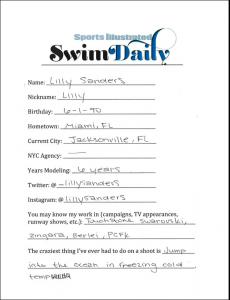 Sports Illustrated
SwimDaily
Name: Lilly Sanders
Nickname: Lilly
Birthday: 6-1-90
Hometown: Miami, FL
Current City: Jacksonville, FL
NYC Agency: —
Years Modeling: 6 years
Twitter: @ _lillysanders
Instagram: @ lillysanders
You may know my work in (campaigns, TV appearances,
runway shows, etc): Touchstone swarovski,
zingara, Berlei, PCFK
The craziest thing I've ever had to do on a shoot is Jump
into the ocean in freezing cold
temp